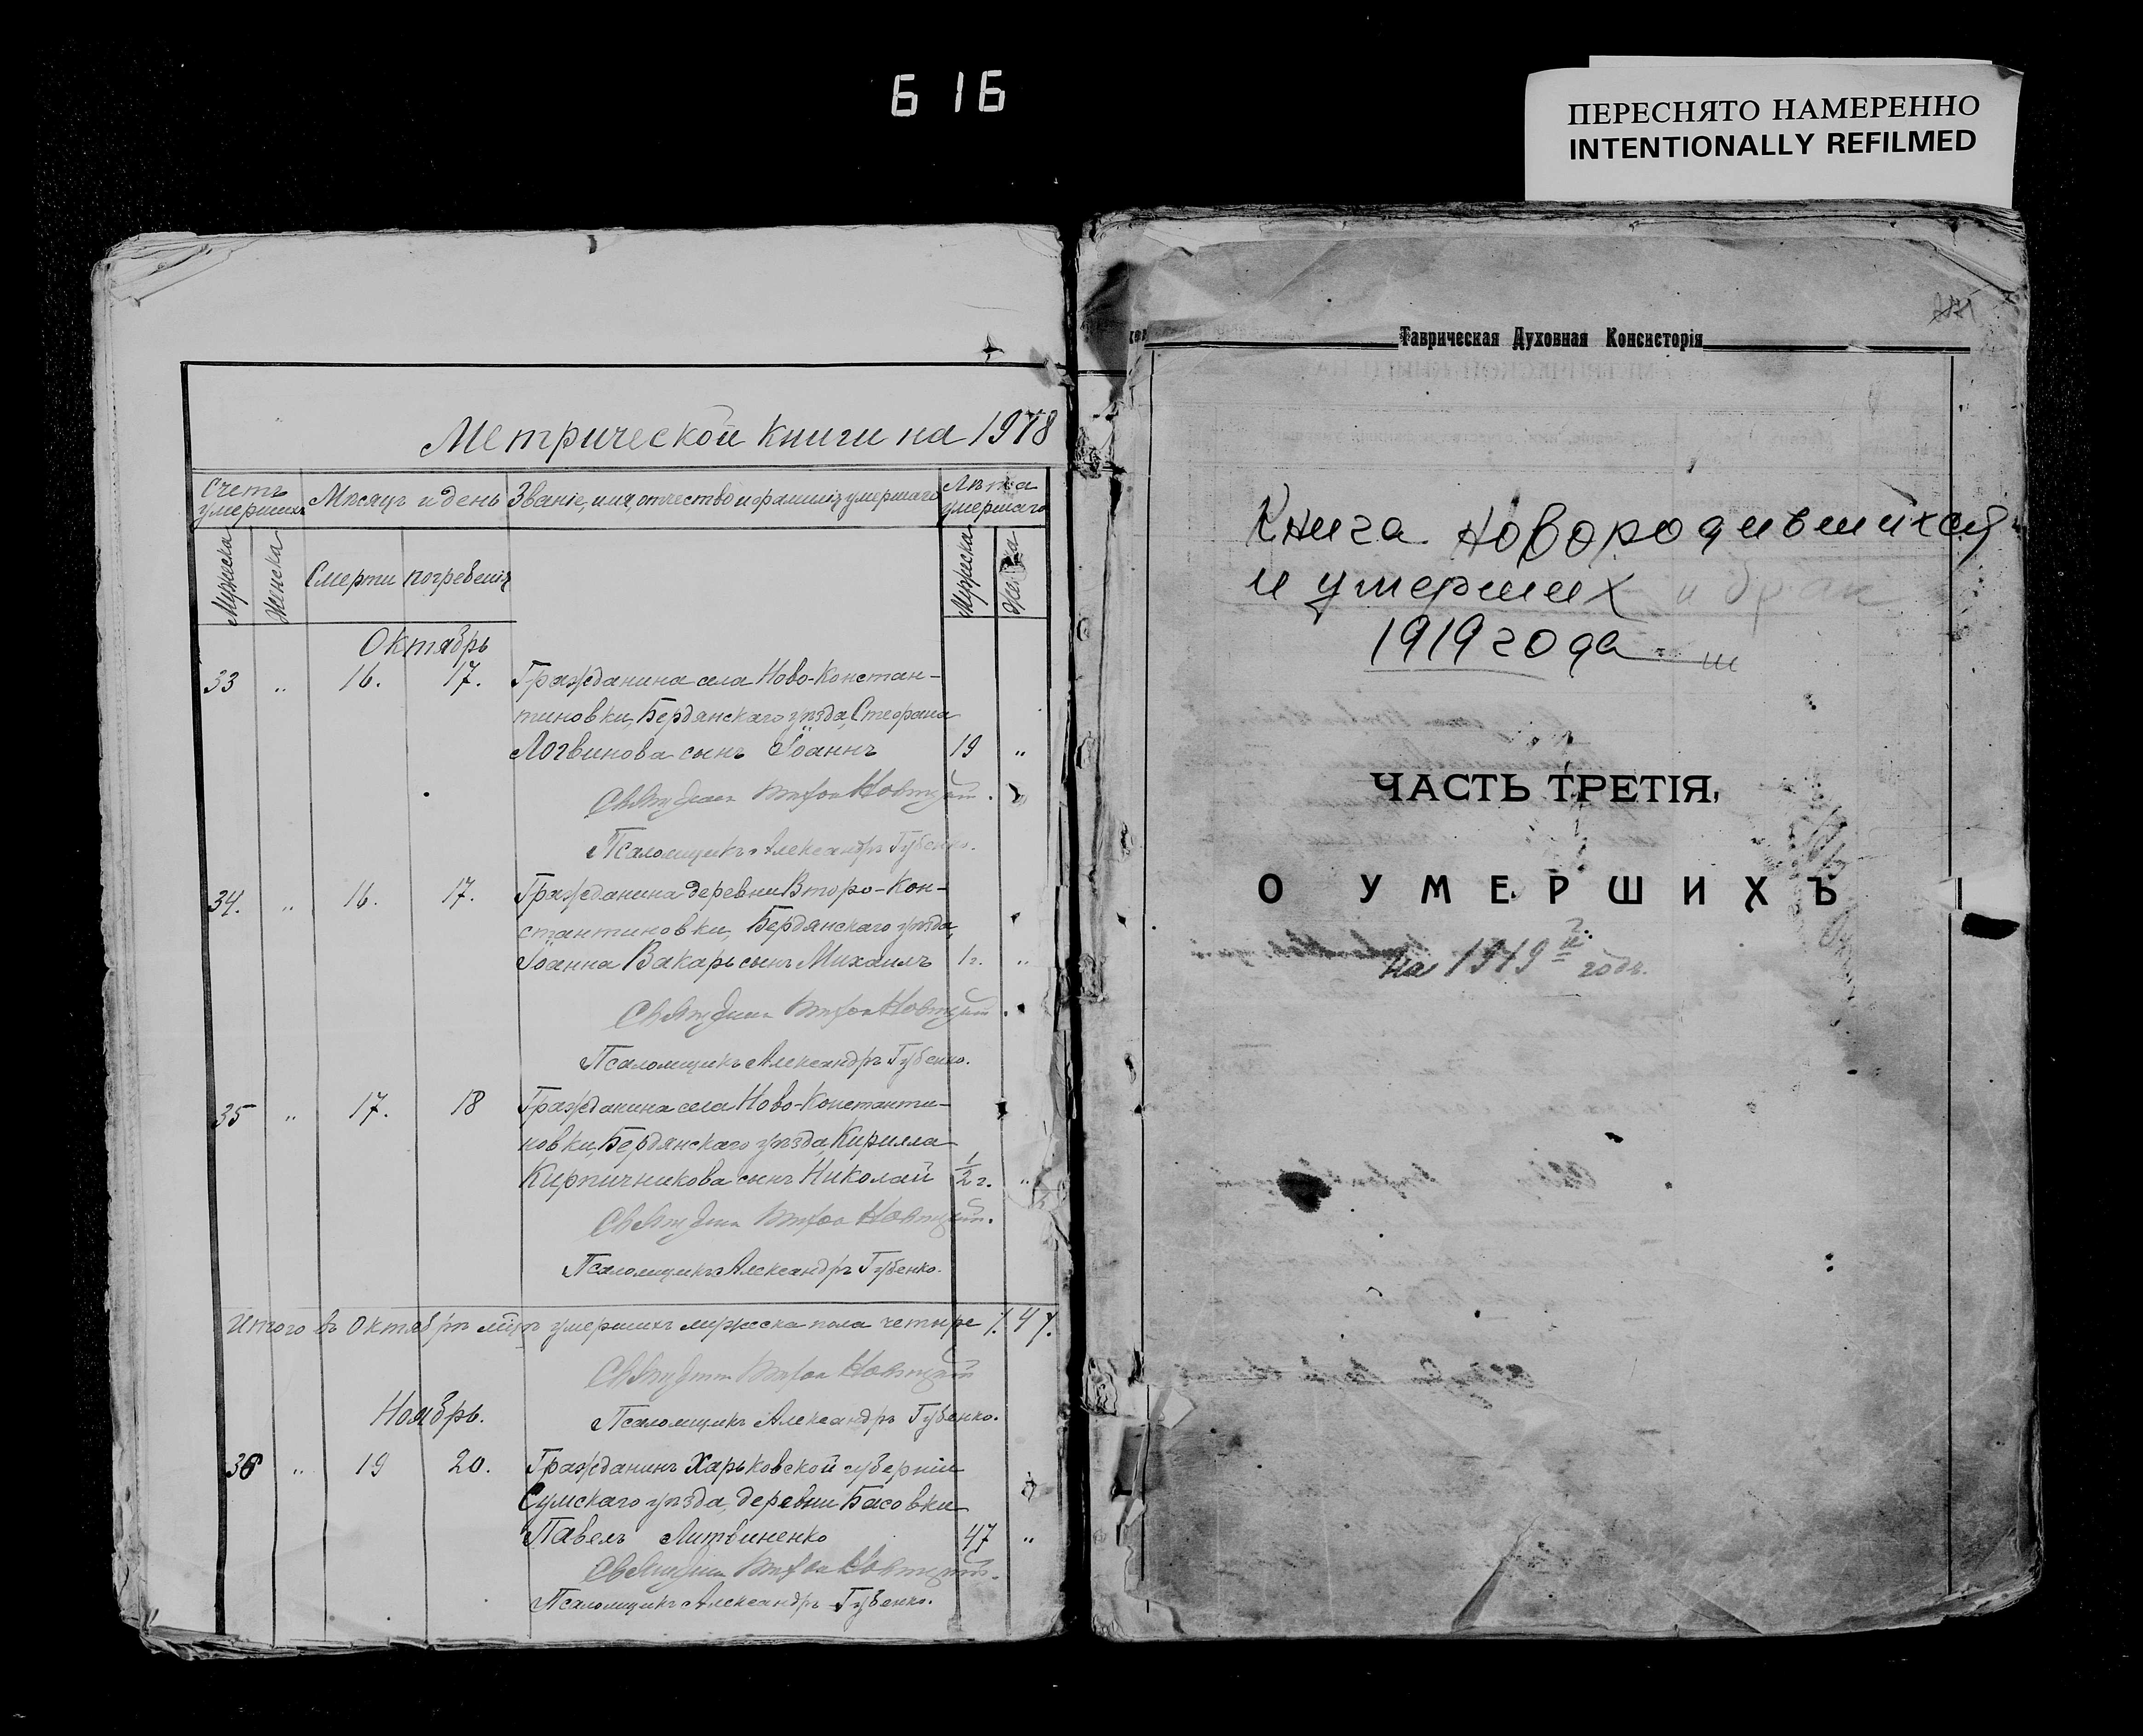 6 16
ПЕРЕСНЯТО НАМЕРЕННО
INTENTIONALLY REFILMED
Метрической книги на 1918
Счетъ умершихъ
Мѣсяцъ и день
Званіе, имя, отчество и фамилія умершаго
Лѣта умершаго
Мужеска
Женска
Смерти
погребенія
Мужеска
Женска
Октябрь
33 " 16. 17. Гражданина села Ново-Констан-
тиновки, Бердянскаго уѣзда, Стефана
Логвинова сынъ Іоаннъ 19 "
Новицкій.
Псаломщикъ Александръ Губенко.
34. " 16. 17. Гражданина деревни Второ-Кон-
стантиновки, Бердянскаго уѣзда,
Іоанна Вакарь сынъ Михаилъ 1 г. "
Новицкій.
Псаломщикъ Александръ Губенко.
35 " 17. 18 Гражданина села Ново-Константи-
новки, Бердянскаго уѣзда, Кирилла
Кирпичникова сынъ Николай 1/2 г. "
Новицкій.
Псаломщикъ Александръ Губенко.
Итого въ Октябрѣ м-цѣ умершихъ мужеска пола четыре /. 4 /.
Новицкій
Ноябрь.
Псаломщикъ Александръ Губенко.
36 " 19 20. Гражданинъ Харьковской губерніи
Сумскаго уѣзда, деревни Басовки
Павелъ Литвиненко 47 "
Новицкій.
Псаломщикъ Александръ Губенко.
Таврическая Духовная Консисторія
Книга новородившихся
и умерших и брак
1919 года
ЧАСТЬ ТРЕТІЯ,
О УМЕРШИХЪ
на 1919 й годъ.